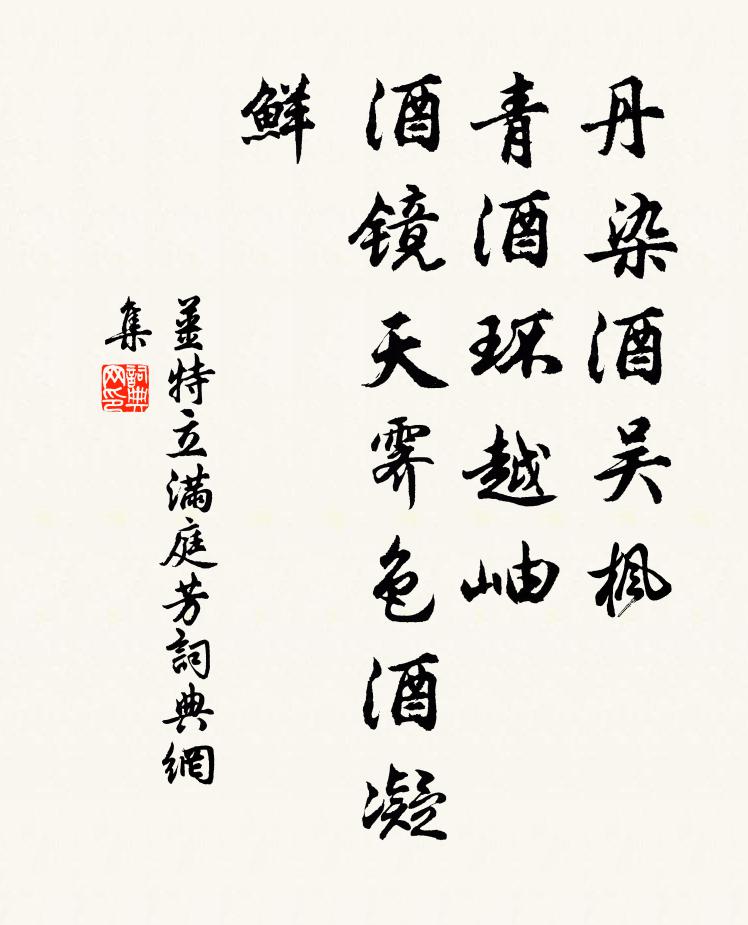 丹染酒吴枫
青酒环越岫
酒镜天霁色酒凝
鲜
姜特立满庭芳詞典網
集
詞典网印